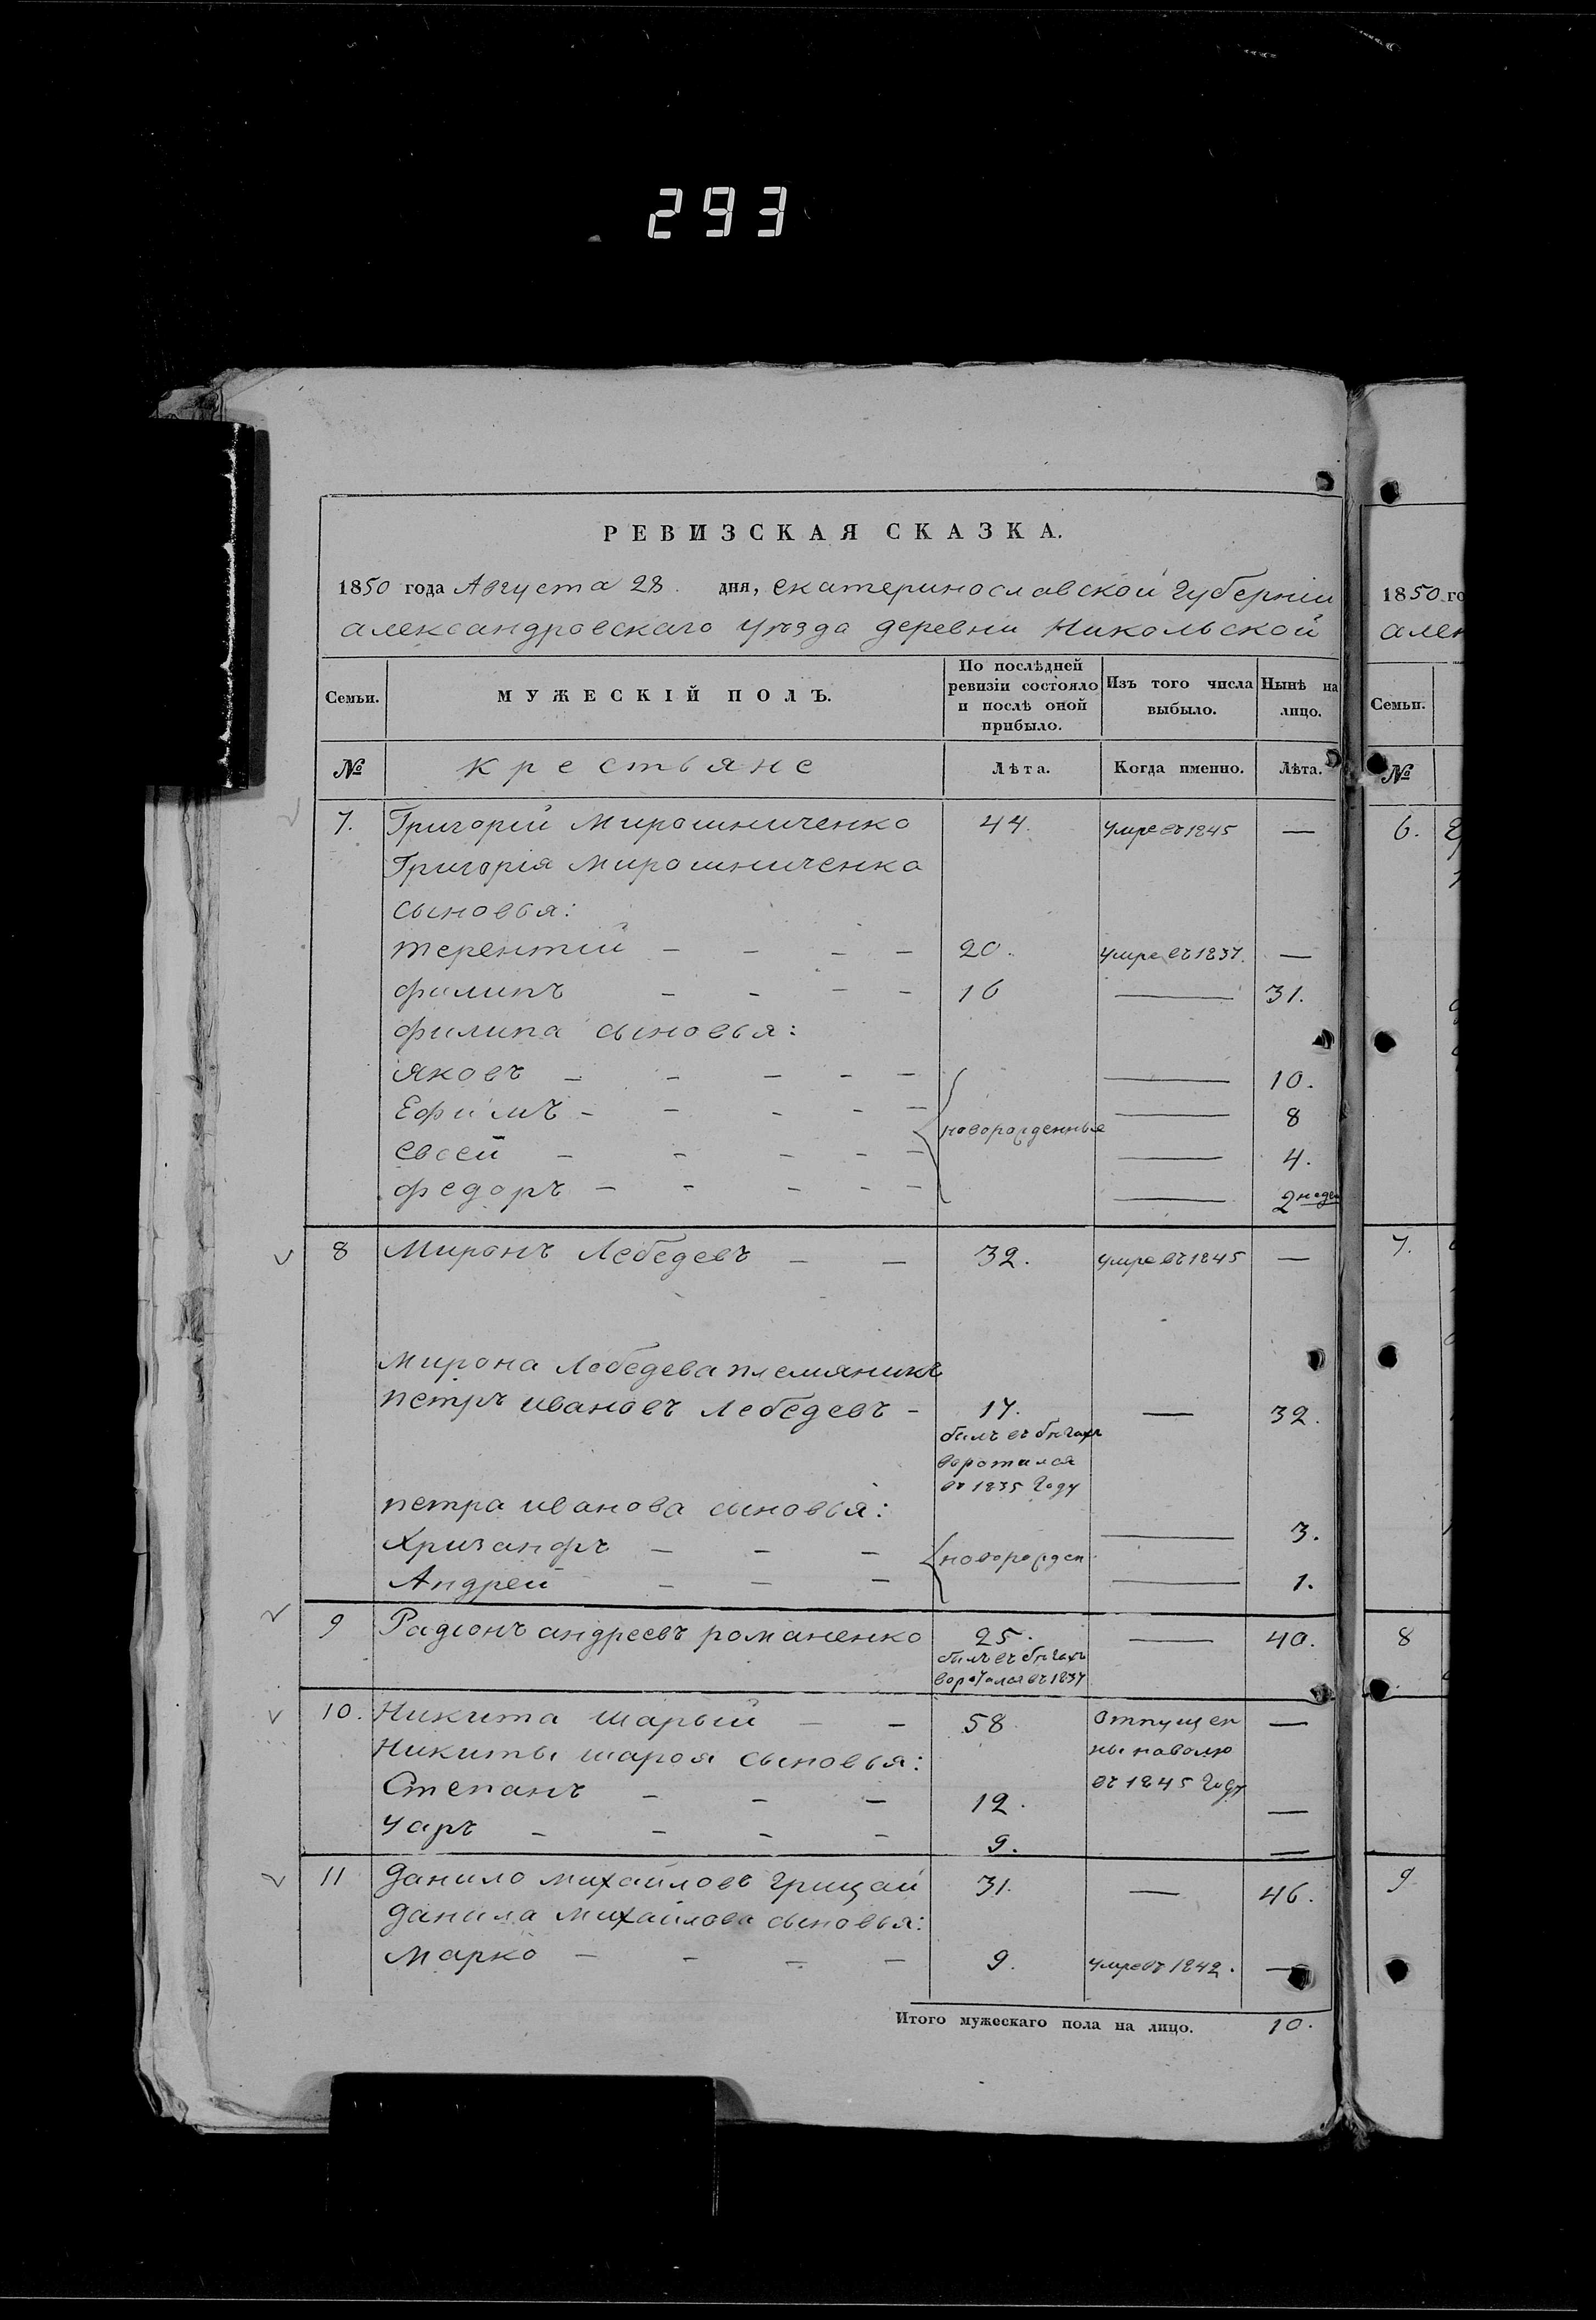 293
РЕВИЗСКАЯ СКАЗКА.
1850 года Августа 28. дня, екатеринославской губерніи
александровскаго уѣзда деревни Никольской
Семьи. МУЖЕСКІЙ ПОЛЪ. По послѣдней ревизіи состояло и послѣ оной прибыло. Изъ того числа выбыло. Нынѣ на лицо.
№ крестьяне Лѣта. Когда именно. Лѣта.
7. Григорій Мирошниченко 44. умре въ 1845 —
Григорія Мирошниченка
сыновья:
терентій - - - - 20. умре въ 1837. —
филипъ - - - - 16 — 31.
филипа сыновья:
яковъ - - - - - новорожденные — 10.
Ефимъ - - - - - — 8
евсей - - - - - — 4.
федоръ - - - - - — 2 недел
8 Миронъ Лебедевъ - - 32. умре въ 1845 —
Мирона Лебедева племяникъ
петръ ивановъ Лебедевъ - 17. — 32.
былъ въ бѣгахъ
воротился
въ 1835 году
петра иванова сыновья:
Хризанфъ - - - новорожден — 3.
Андрей - - - — 1.
9 Радіонъ андреевъ романенко 25. — 40.
былъ въ бѣгахъ
воротился въ 1837
10. Никита шарый - - 58. отпущен —
Никиты шароя сыновья: ны наволю
Степанъ - - - 12. въ 1845 году —
- - - - 9. —
11 Данило михайловъ Грицай 31. — 46.
Данила михайлова сыновья:
Марко - - - - 9. умре въ 1842. —
Итого мужескаго пола на лицо. 10.
1850 го
алек
Семьи.
№
6.
7.
8
9